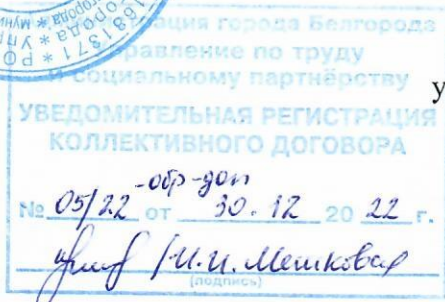 ция города Белгорода
равление по труду
и социальному партнёрству
УВЕДОМИТЕЛЬНАЯ РЕГИСТРАЦИЯ
КОЛЛЕКТИВНОГО ДОГОВОРА
№ 05/22 -обр-доп от 30.12 20 22 г.
/И.И. Мешкова/
(подпись)
у